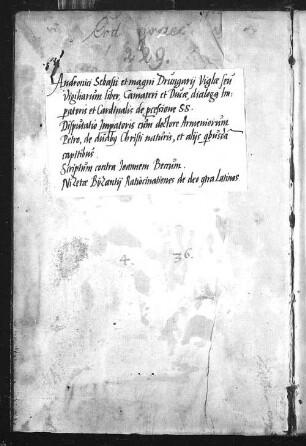 Cod. graec.
229.
Andronici Sebasti et magni Drungarij Viglae seu
Vigiliarum liber, Camateri et Ducae, dialogi im-
patoris et Cardinalis de pcesione SS.
Disputatio Impatoris cum doctore Armeniorum
Petro, de duabg Christi naturis, et alijs gbusdã
capitibus
Scriptum contra Joannem Becum.
Nicetae Byzantij Ratiocinationes de deo gtra Latinos.
4 36.